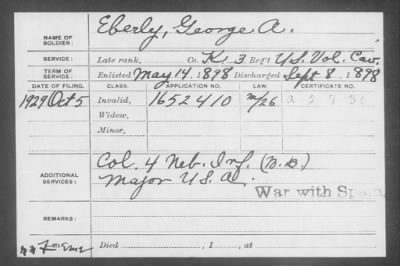 NAME OF SOLDIER: Eberly, George A.
SERVICE: Late rank, Co. K. 3 Reg't U.S. Vol. Cav.
TERM OF SERVICE: Enlisted May 14. 1898 Discharged Sept 8., 1898
DATE OF FILING. CLASS. APPLICATION NO. LAW. CERTIFICATE NO.
1929 Oct 5 Invalid, 1652410
Widow,
Minor,
ADDITIONAL SERVICES: Col. 4 Neb. Inf. (N.G.)
Major U.S.A.
War with
REMARKS:
Died , 1 , at